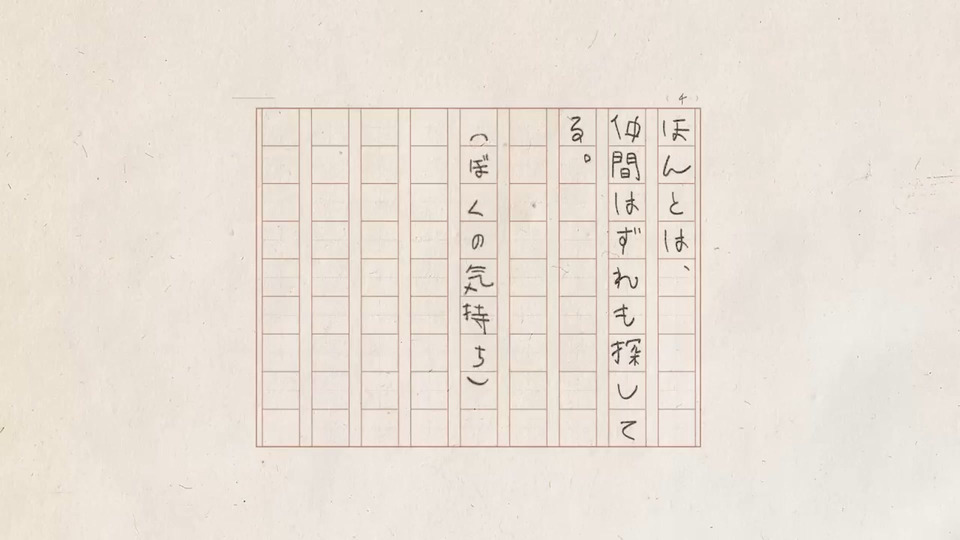 (4)
ほんとは、
仲間はずれも探して
る。
(ぼくの気持ち)